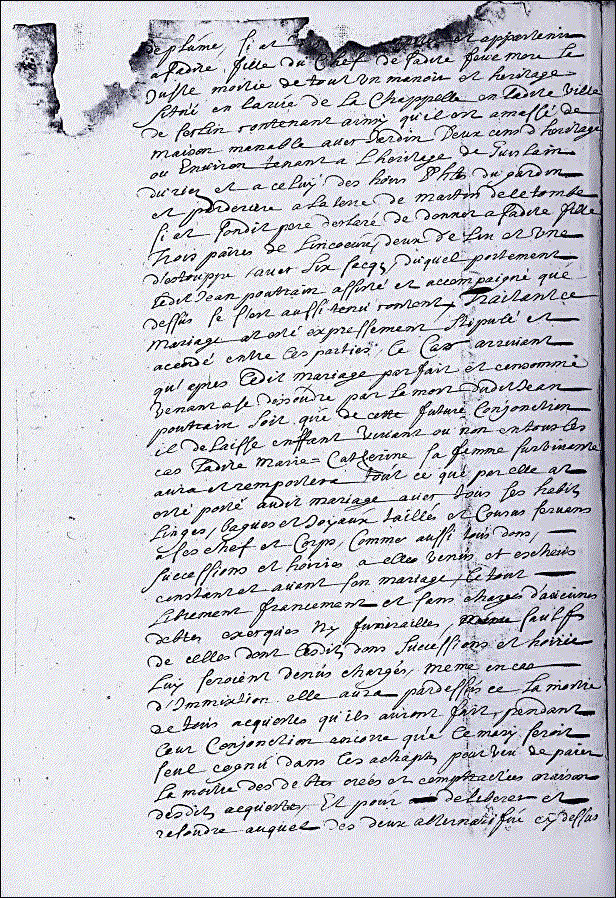 de plume, si at et appertenir
a ladite fille du Chef de ladite feue mere La
Juste moitie de tout un manoir et heritage
situé en la rue de La Chappelle en ladite ville
de contenant ainsy qu'il est amassé de
maison manable avec Jardin Deux cens d'heritage
ou Environ tenant a L'heritage de Guislain
et a celuy des hoirs du gardin
et par derriere a La terre de martin deletombe
si at Londit pere declaré de donner a ladite fille
trois paires de Linceux, deux de Lin et une
d'estouppe avec six sacqs, duquel portement
Ledit Jean poutrain assisté et accompaigné que
dessus se s'est aussi tenu content, Traitant ce
mariage at esté expressement stipulé et
accordé entre les parties, Le Cas arrivant
qu'apres Ledit mariage parfait et consommé
venant a se dissoudre par la mort dudit Jean
poutrain soit que de cette future Conjonction
il delaisse enffant vivant ou non en tous les
cas Ladite Marie = Catherine sa femme survivante
aura et remportera Tout ce que par elle at
esté porté audit mariage avec tous les habits
Linges, bagues et Joyaux taillés et Cousus servans
a ses chef et Corps, Comme aussi tous dons,
successions et hoiries a elles venus et escheus
constant et avant son mariage, Le tout
Librement franchement et sans charges d'aucunes
debtes exeques ny funerailles, saulf
de celles dont lesdits dons successions et hoirie
Luy seroient venus chargés, meme en cas
d'Immixtion elle aura par dessus ce La moitie
de tous acquestes qu'ils auront fait pendant
Leur Conjonction encorre que Le mary seroit
seul cognu dans les achapts, pourveu de paier
La moitie des debtes creés et a raison
desdits acquestes, Et pour deliberer et
resoudre auquel des deux cy dessus